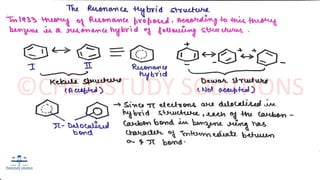 The Resonance Hybrid Structure
In 1933 theory of Resonance proposed. According to this theory
benzene is a resonance hybrid of following structures.
I
II
Resonance
hybrid
Kekule Structure
(Accepted)
Dewar Structure
(Not accepted)
π-Delocalised
bond
→ Since π electrons are delocalised in
hybrid structure, each of the Carbon-
Carbon bond in benzene ring has
character of intermediate between
σ & π bond.